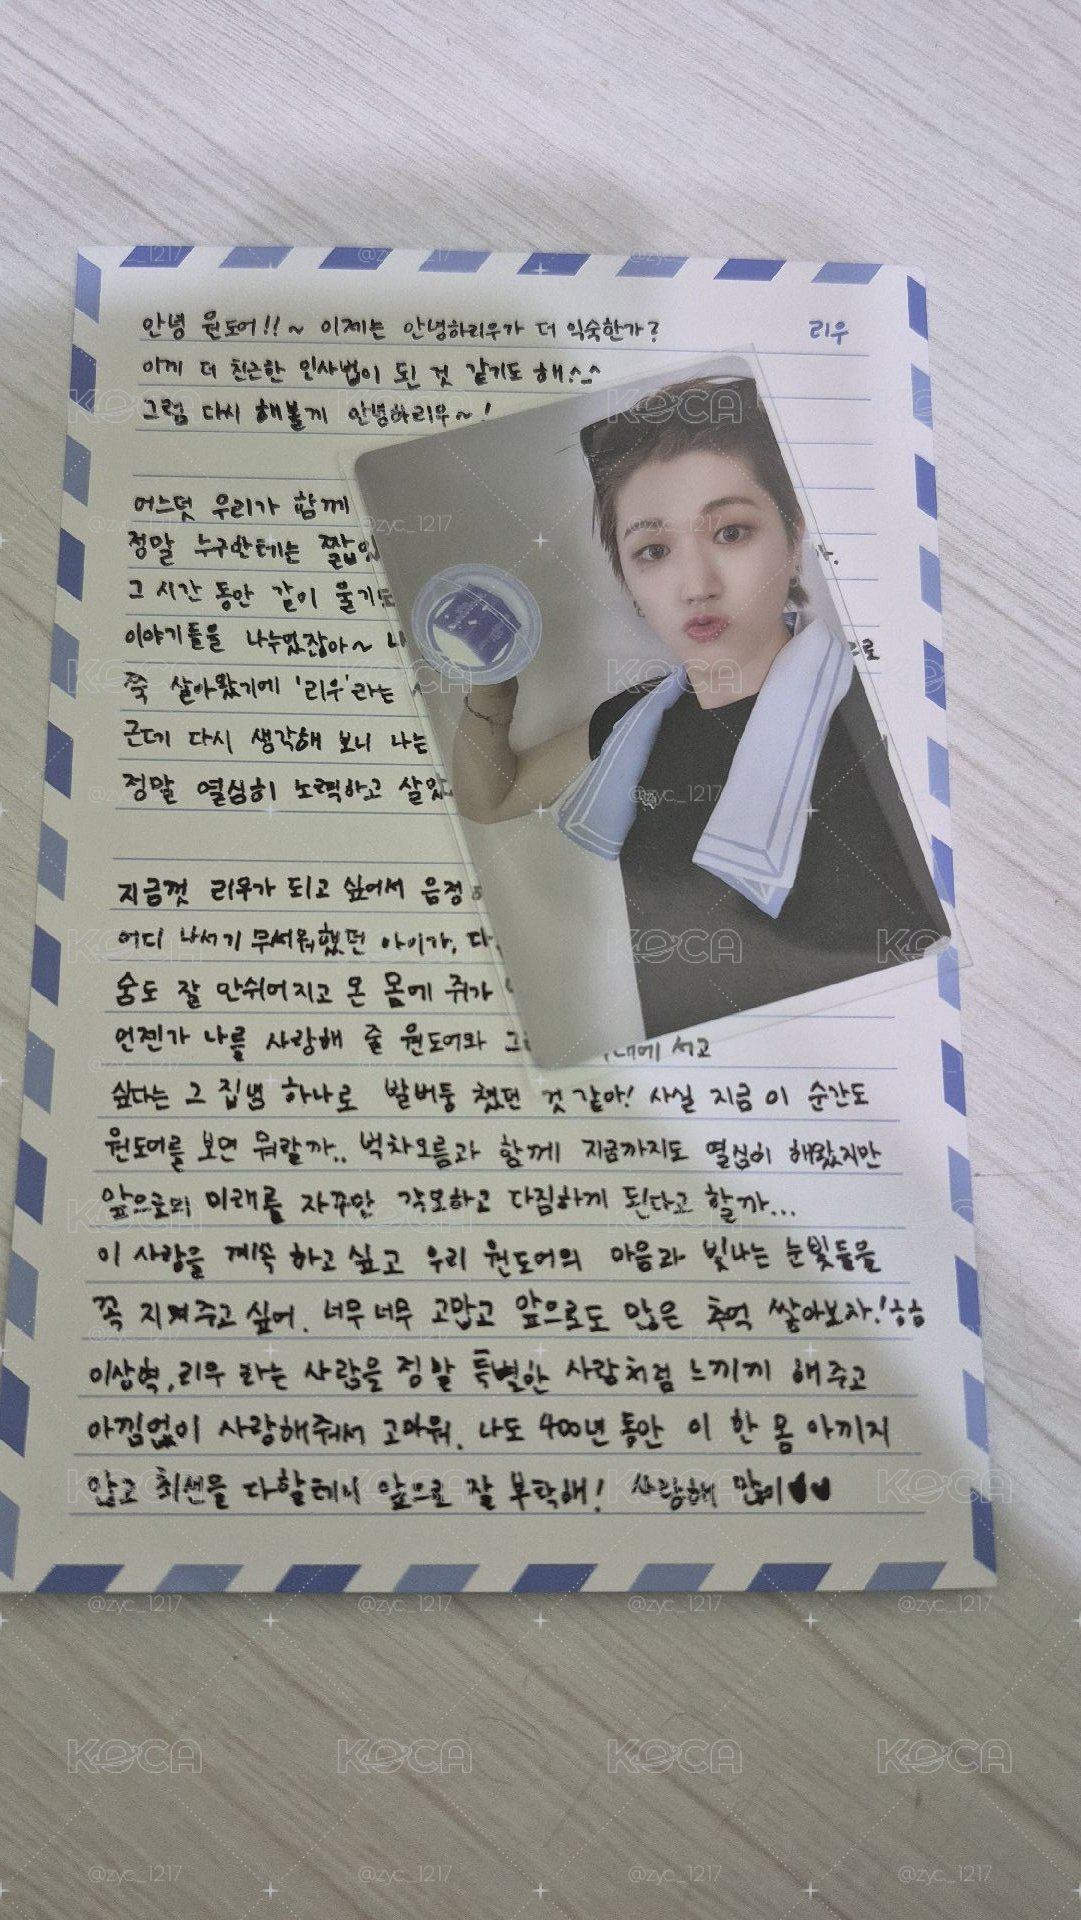 안녕 원도어!!~ 이제는 안녕하리우가 더 익숙한가?
리우
이게 더 친근한 인사법이 된 것 같기도 해^_^
그럼 다시 해볼게 안녕하리우~!
어느덧 우리가 함께
정말 누구한테는 짧았
그 시간 동안 같이 울기도
이야기들을 나누었잖아~ 나
쭉 살아왔기에 '리우'라는
근데 다시 생각해 보니 나는
정말 열심히 노력하고 살았
지금껏 리우가 되고 싶어서 음정
어디 나서기 무서워했던 아이가, 다
숨도 잘 안쉬어지고 온 몸에 쥐가
언젠가 나를 사랑해 줄 원도어와 그 서고
싶다는 그 집념 하나로 발버둥 쳤던 것 같아! 사실 지금 이 순간도
원도어를 보면 뭐랄까.. 벅차오름과 함께 지금까지도 열심히 해왔지만
앞으로의 미래를 자꾸만 각오하고 다짐하게 된다고 할까...
이 사랑을 계속 하고 싶고 우리 원도어의 마음과 빛나는 눈빛들을
꼭 지켜주고 싶어. 너무너무 고맙고 앞으로도 많은 추억 쌓아보자! ㅎㅎ
이상혁, 리우 라는 사람을 정말 특별한 사람처럼 느끼게 해주고
아낌없이 사랑해줘서 고마워. 나도 400년 동안 이 한 몸 아끼지
않고 최선을 다할테니 앞으로 잘 부탁해! 사랑해 많이♥♥
KOCA
@zyc_1217